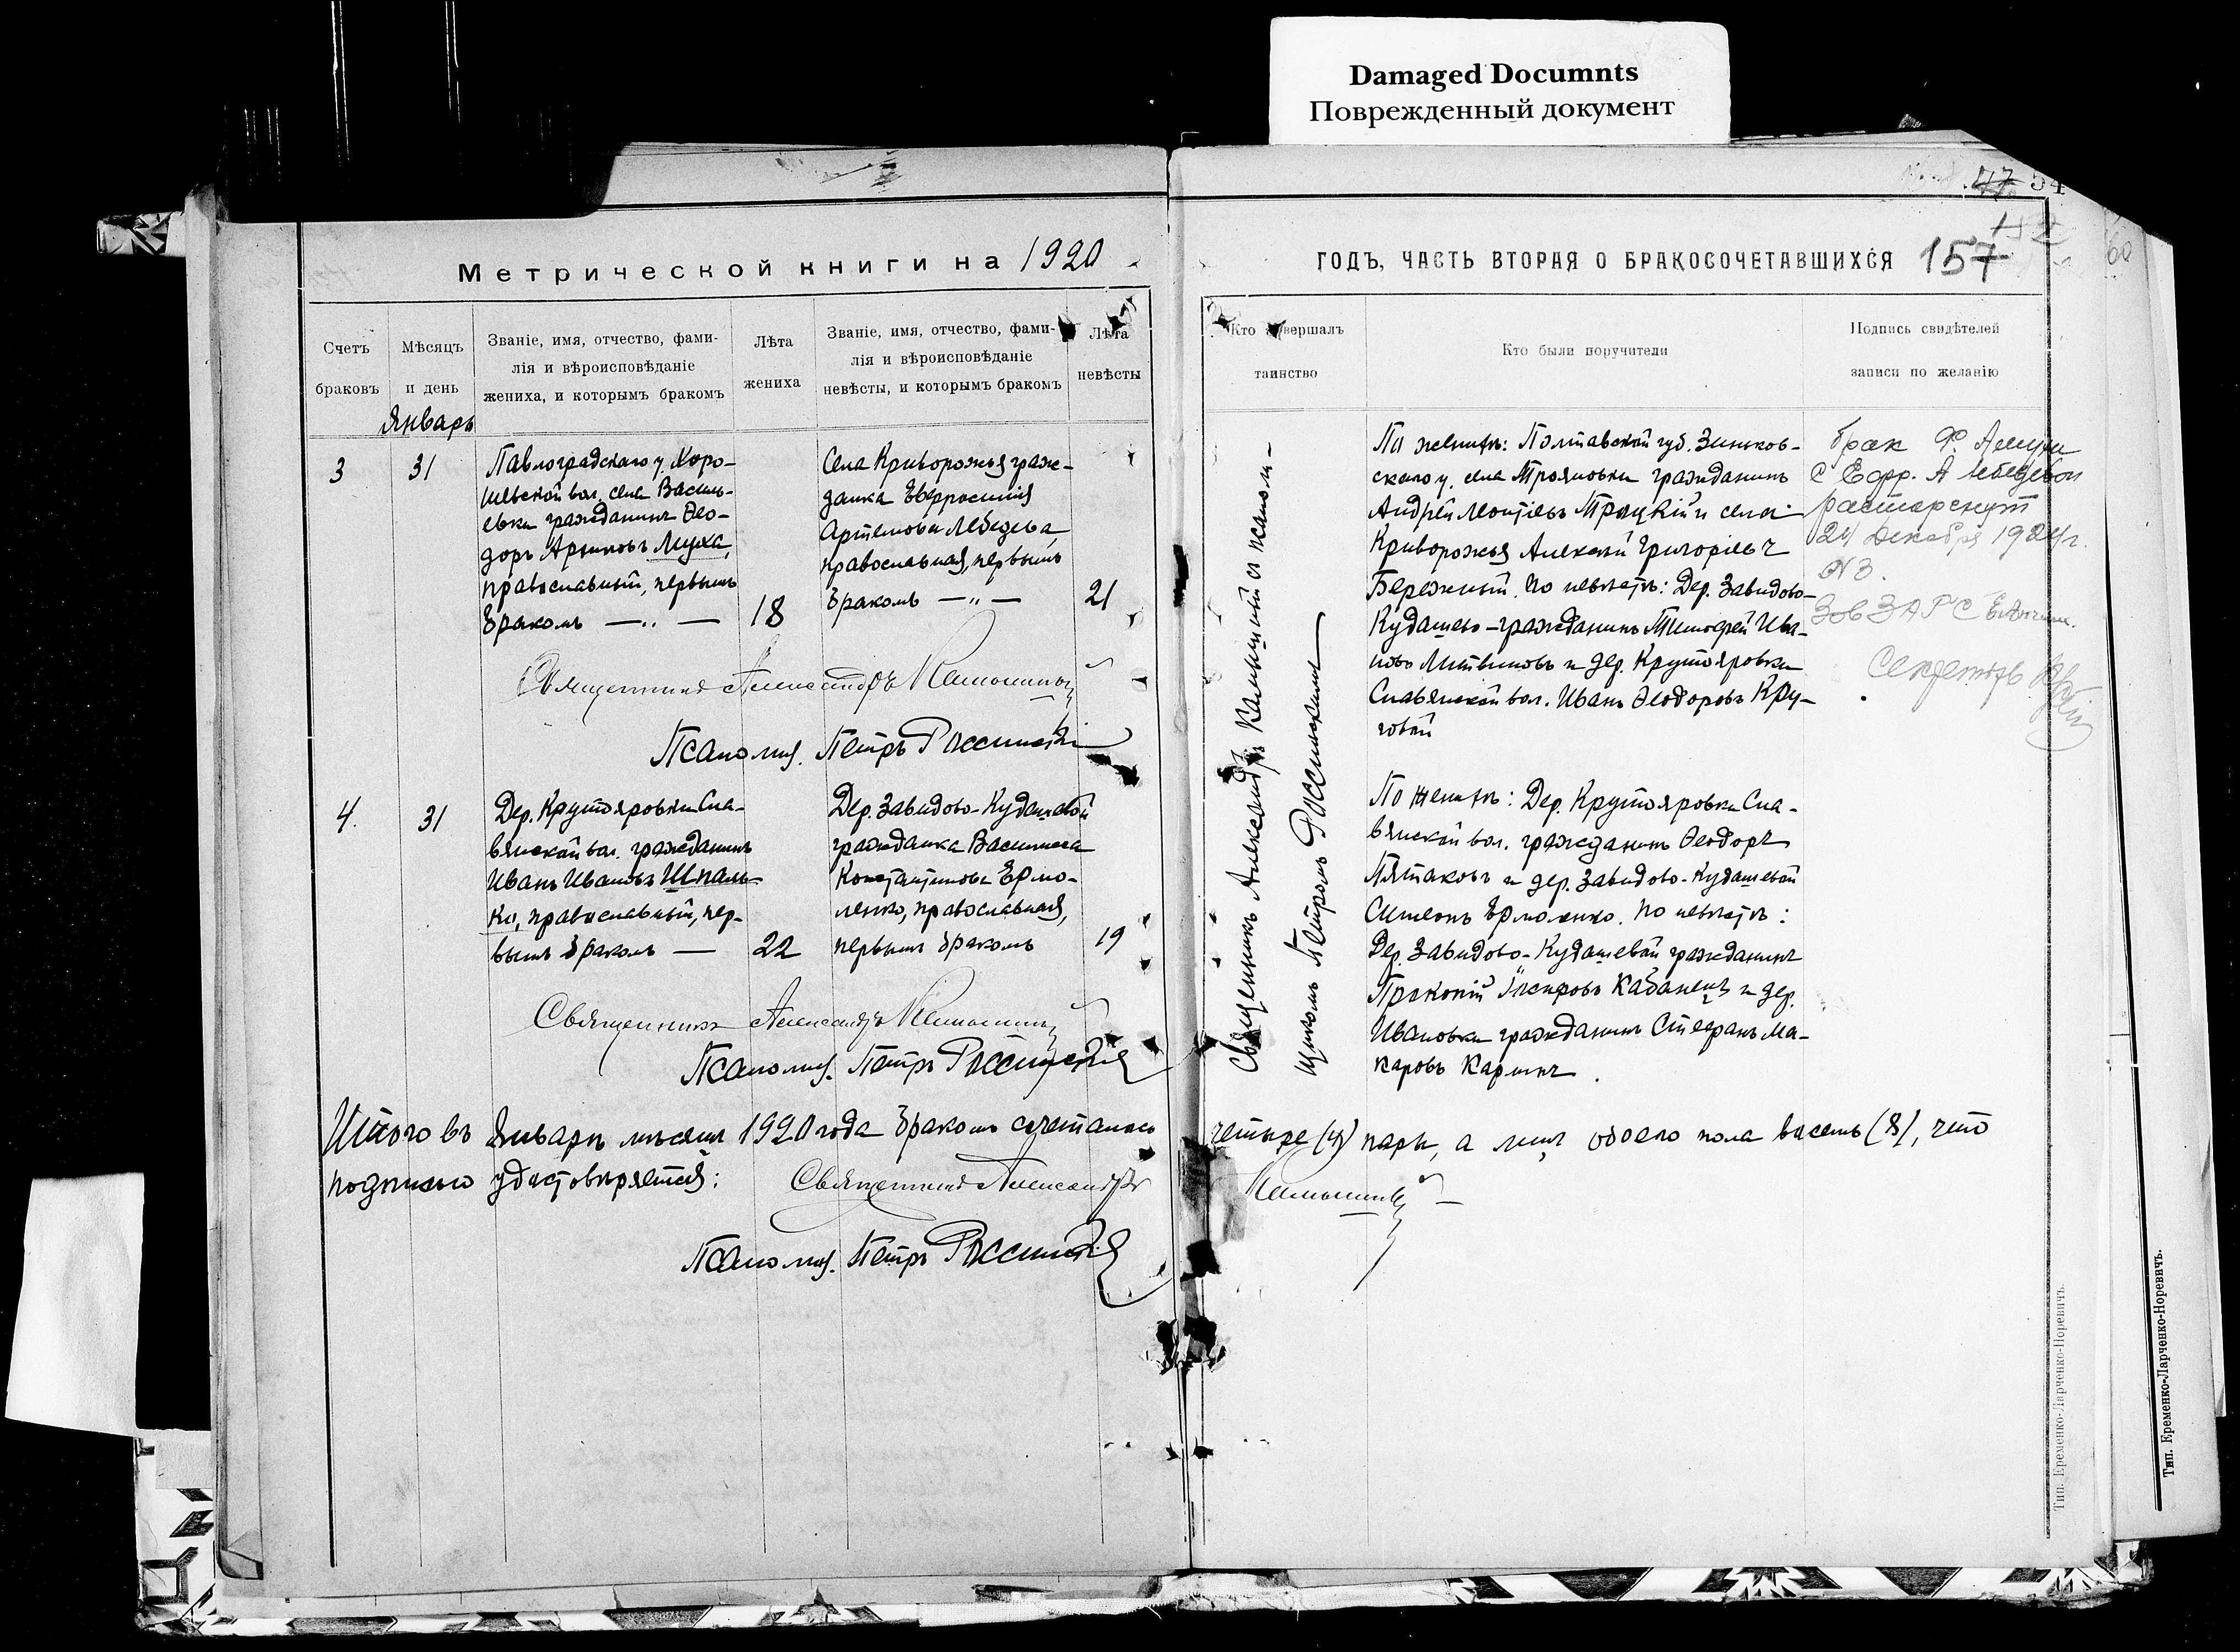 Damaged Documnts
Поврежденный документ
47 54
157
60
Метрической книги на 1920
Счетъ браковъ
Мѣсяцъ и день
Званіе, имя, отчество, фами-
лія и вѣроисповѣданіе
жениха, и которымъ бракомъ
Лѣта жениха
Званіе, имя, отчество, фами-
лія и вѣроисповѣданіе
невѣсты, и которымъ бракомъ
Лѣта невѣсты
Январь
3
31
Павлоградскаго у. Хоро-
шевской вол. села Василь-
евки гражданинъ Ѳео-
доръ Муха,
православный, первымъ
бракомъ — „ —
18
Села Криворожья граж-
данка Евфросинія
Артемова Лебедева,
православная, первымъ
бракомъ — „ —
21
Священникъ Александръ
Псаломщ. Петръ
4.
31
Дер. Крутояровки Сла-
вянской вол. гражданинъ
Иванъ Ивановъ Шпаль-
ко, православный, пер-
вымъ бракомъ —
22
Дер. Завидово-Кудашевой
гражданка Василиса
Константинова Ермо-
ленко, православная,
первымъ бракомъ
19
Священникъ Александръ
Псаломщ. Петръ
Итого въ Январѣ мѣсяцѣ 1920 года бракомъ сочеталось
подписью удостовѣряется:
Священникъ Александръ
Псаломщ. Петръ
ГОДЪ, ЧАСТЬ ВТОРАЯ О БРАКОСОЧЕТАВШИХСЯ
Кто совершалъ
таинство
Кто были поручители
Подпись свидѣтелей
записи по желанію
Священникъ Александръ съ псалом-
щикомъ Петромъ
По женихѣ: Полтавской губ. Зиньков-
скаго у. села Трояновки гражданинъ
Андрей Троцкій и села
Криворожья Алексѣй Григоріевъ
Бережный. По невѣстѣ: Дер. Завидово-
Кудашево-гражданинъ Тимофей Ива-
новъ Литвиновъ и дер. Крутояровки
Славянской вол. Иванъ Ѳеодоровъ Кру-
говой
брак Ф.
с Ефр. А Лебедевой
расторгнут
24 декабря 1924 г.
N 3.
Зав ЗАГС
Секретарь
По женихѣ: Дер. Крутояровки Сла-
вянской вол. гражданинъ Ѳеодоръ
Пятаковъ и дер. Завидово-Кудашевой
Симеонъ Ермоленко. По невѣстѣ:
Дер. Завидово-Кудашевой гражданинъ
Прокопій Кабанецъ и дер.
Ивановки гражданинъ Стефанъ Ма-
каровъ
четыре (4) пары, а лицъ обоего пола восемь (8), что
Тип. Еременко-Ларченко-Норевичъ.
Тип. Еременко-Ларченко-Норевичъ.